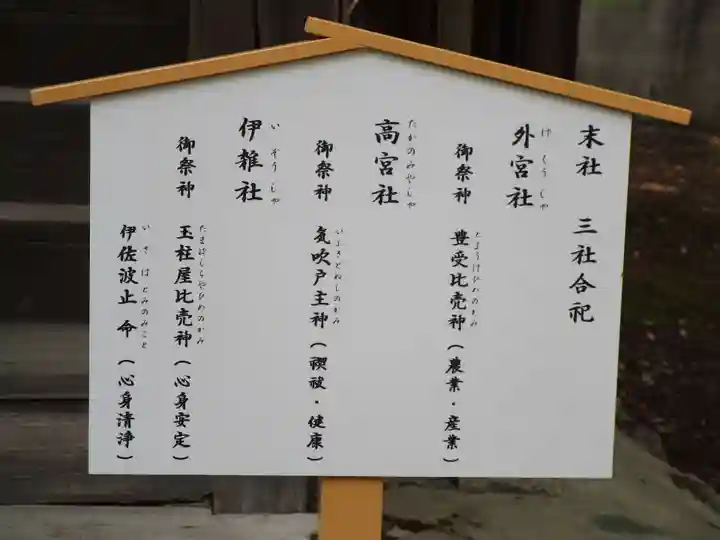 末社 三社合祀
外宮社
げくうしゃ
御祭神 豊受比売神（農業・産業）
とようけひめのかみ
高宮社
たかのみやしゃ
御祭神 気吹戸主神（禊祓・健康）
いぶきどぬしのかみ
伊雑社
いぞうしゃ
御祭神 玉柱屋比売神（心身安定）
たまばしらやひめのかみ
伊佐波止命（心身清浄）
いさはとみのみこと